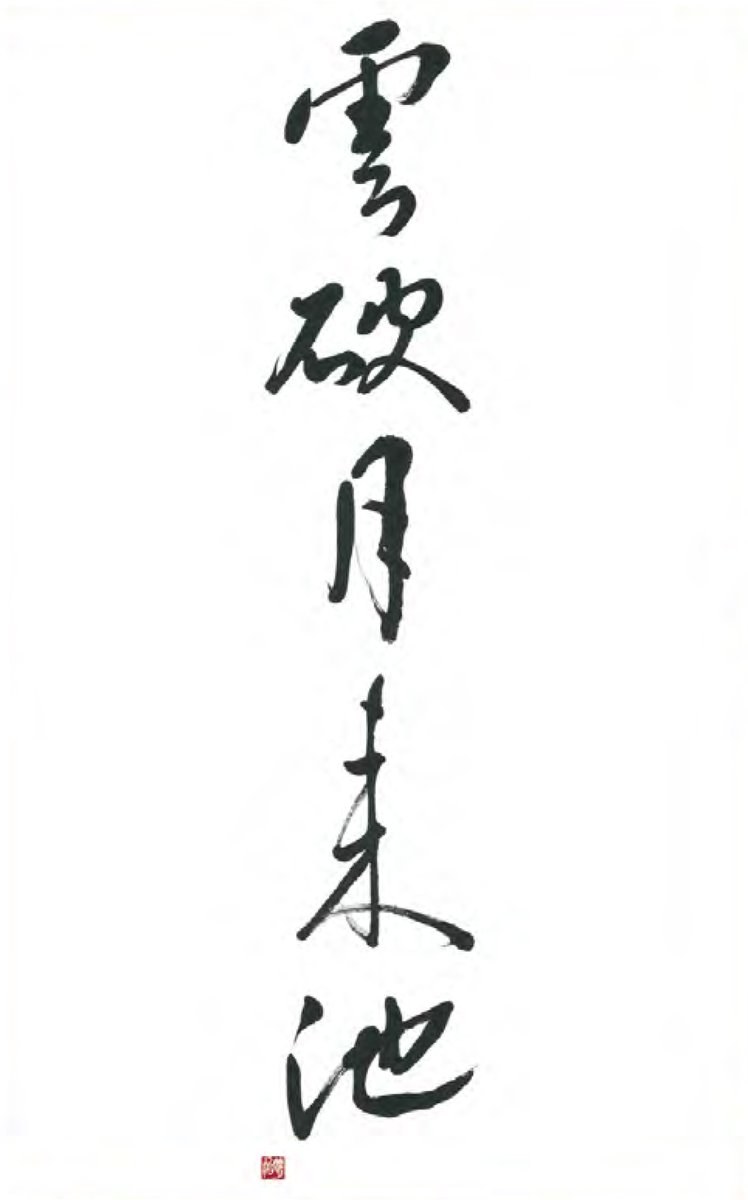 雲破月来池